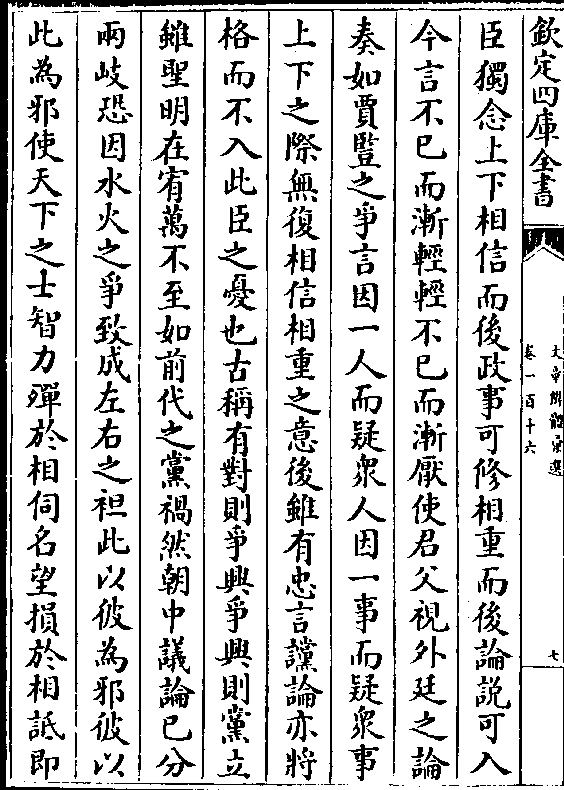 欽定四庫全書
文章辨體彙選
卷一百十六
七
臣獨念上下相信而後政事可修相重而後論說可入
今言不已而漸輕輕不已而漸厭使君父視外廷之論
奏如賈豎之爭言因一人而疑衆人因一事而疑衆事
上下之際無復相信相重之意後雖有忠言讜論亦將
格而不入此臣之憂也古稱有對則爭興爭興則黨立
雖聖明在宥萬不至如前代之黨禍然朝中議論已分
兩岐恐因水火之爭致成左右之袒此以彼為邪彼以
此為邪使天下之士智力殫於相伺名望損於相詆即